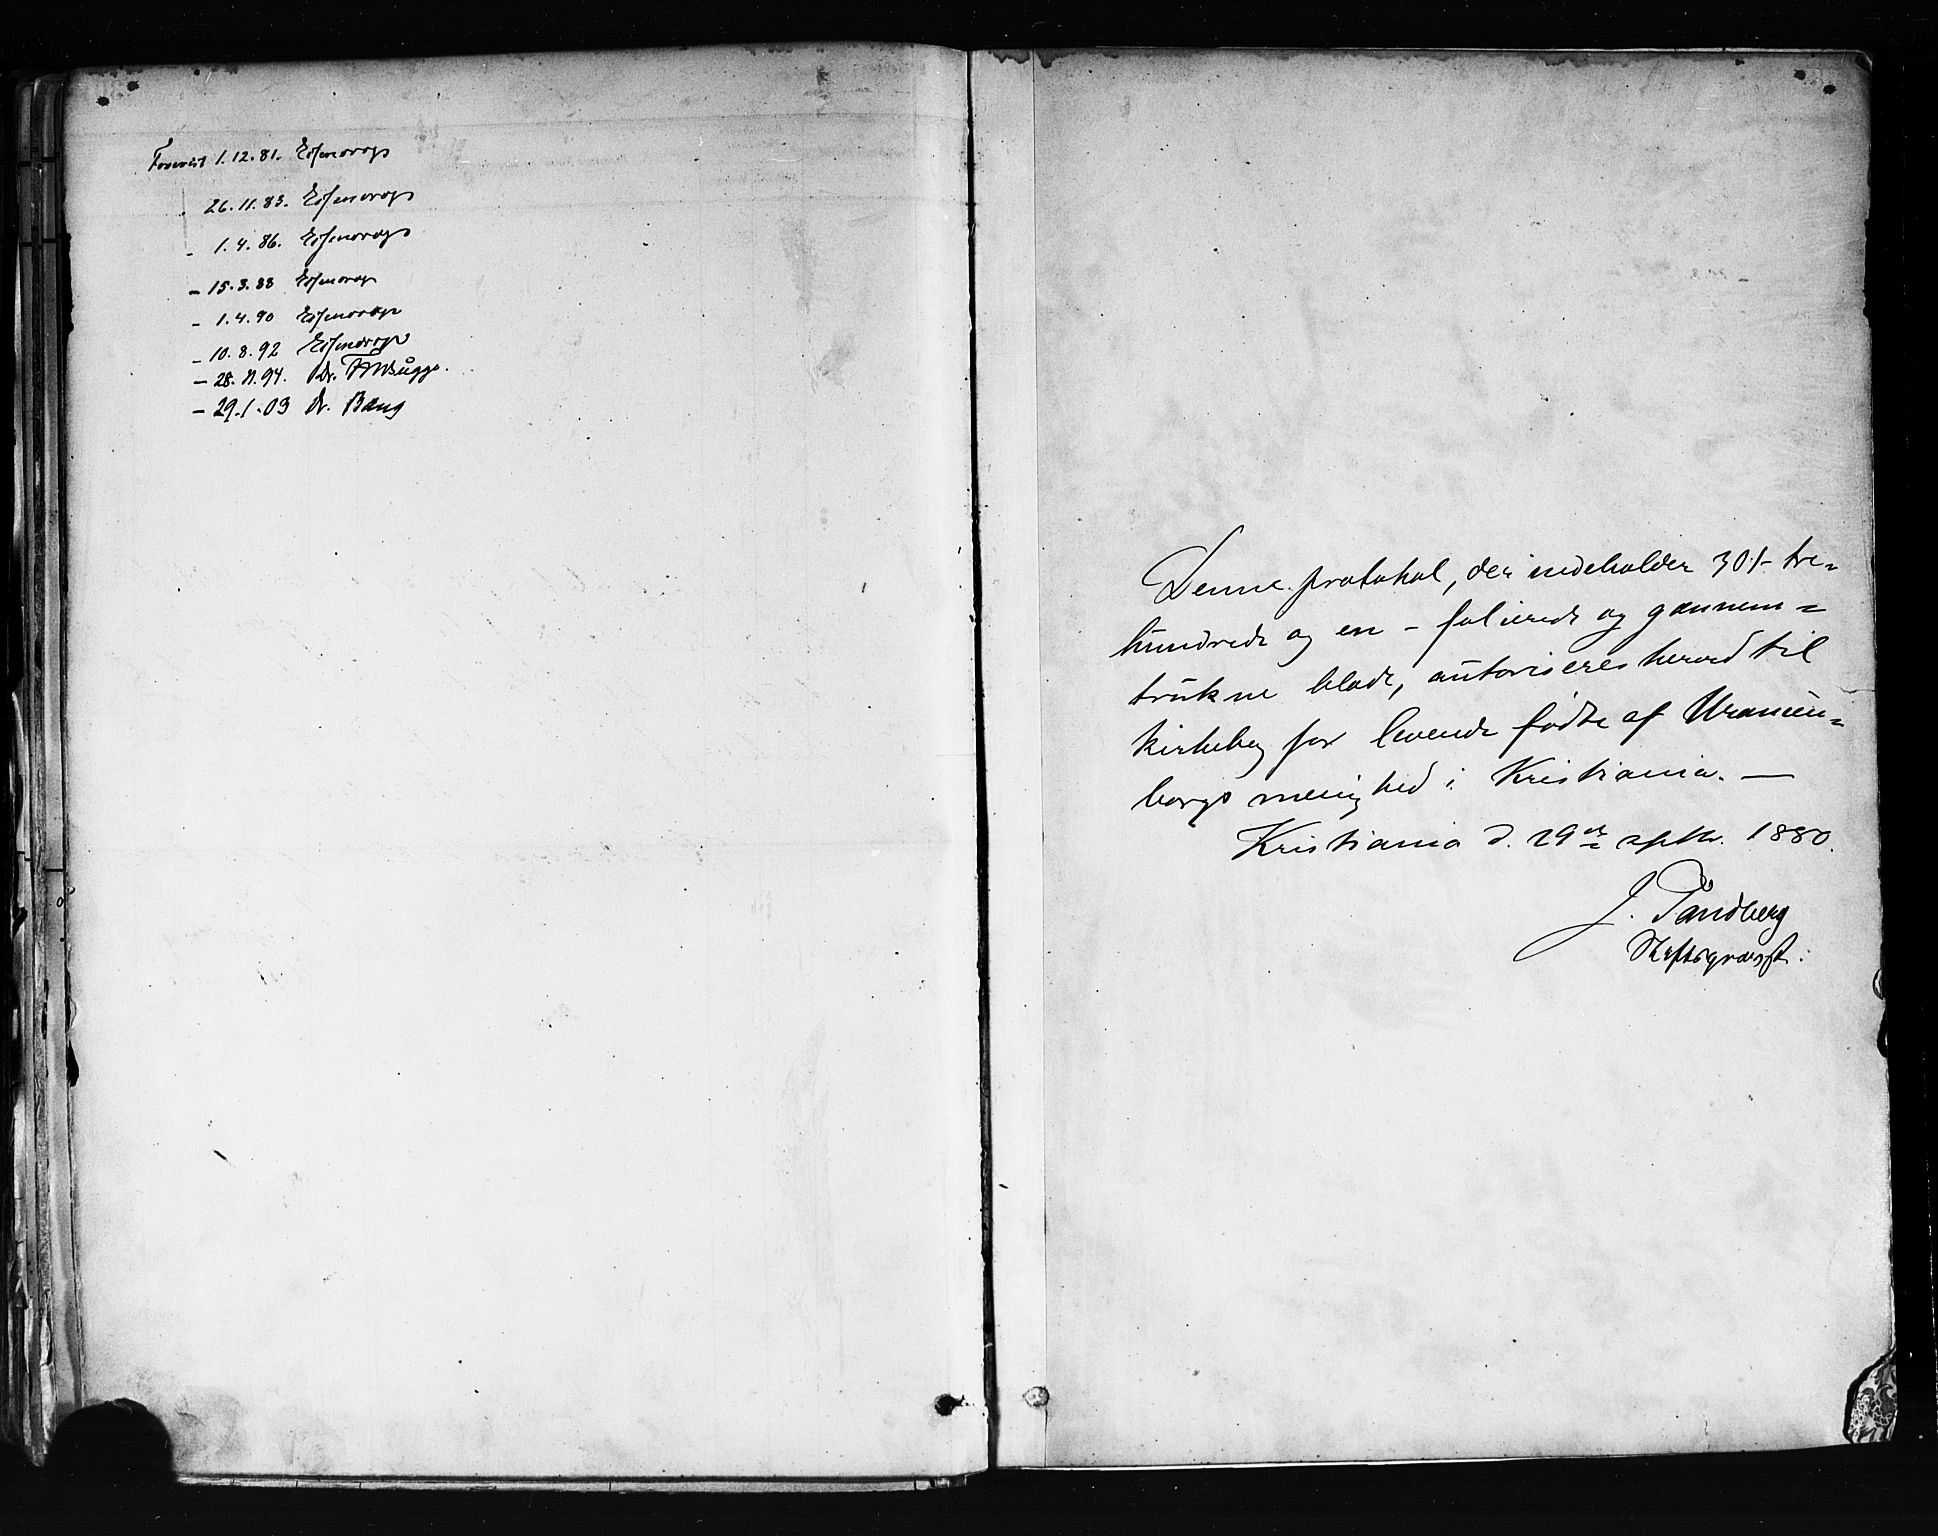 Forevist 1.12.81. Essendrop
- 26.11.83. Essendrop
- 1.4.86. Essendrop
- 15.3.88 Essendrop
- 1.4.90 Essendrop
- 10.8.92 Essendrop
- 28. 11. 94. Dr. FWBugge.
- 29.1.03 Dr. Bang
Denne protokol, der indeholder 301- tre=
hundrede og en - folierede og gennem=
trukne blade, autoriseres herved til
kirkebog for levende fødte af Uranien=
borgs menighed i Kristiania. —
Kristiania d. 29de septbr. 1880.
J. Sandberg
Stiftsprovst.